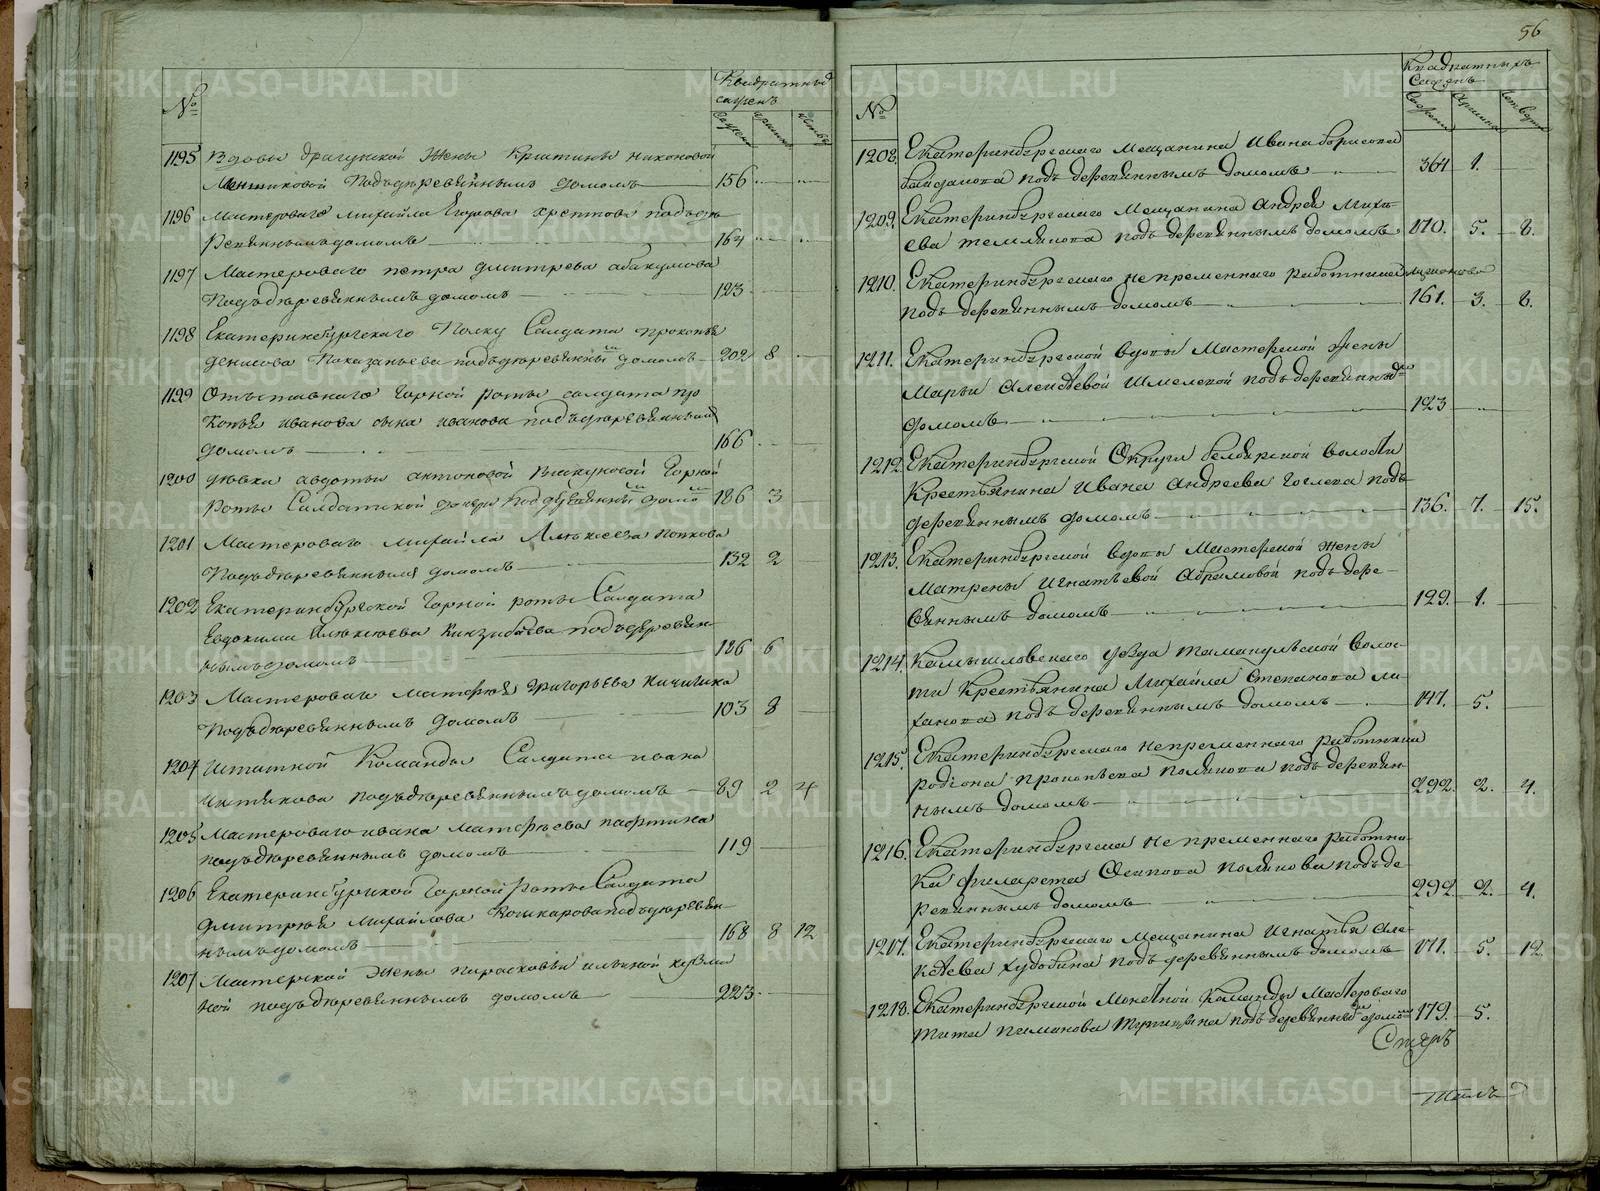 №
Квадратных
сажен
1195 Вдовы драгунской жены Кристины никоновой
Меншиковой Подъдеревянным домомъ 156
1196 Мастероваго михайла Егорова подъде
ревяннымъ домомъ 164
1197 Мастероваго петра дмитрева абакумова
Подъдеревяннымъ домомъ 123
1198 Екатеринбургскаго Полку Салдата прокопья
денисова подъдеревянны домомъ 202 8
1199 Отъставнаго Горной роты салдата про
копья иванова сына иванова подъдеревянным
домомъ 166
1200 девки авдотьи антоновой Горной
роты Салдатской дочери Подъдеревянны домо 186 3
1201 Мастероваго михайла Алексеева попкова
Подъдеревянным домомъ 132 2
1202 Екатеринбургской Горной роты Салдата
Евдокима Алексеева подъдеревян
нымъ домомъ 186 6
1203 Мастероваго матфея григорьева
Подъдеревяннымъ домомъ 103 8
1204 Штатной Команды Салдата ивана
подъдеревяннымъ домомъ 89 2 4
1205 Мастероваго ивана матфеева
подъдеревяннымъ домомъ 119
1206 Екатеринбургской Горной роты Салдата
дмитрея михайлова Кошкарова подъдеревян
нымъ домомъ 168 8 12
1207 Мастерской жены парасковьи ильиной
ной подъдеревяннымъ домомъ 223
56
№
Квадратныхъ
Сажень
1208. Екатеринбургскаго Мещанина Ивана борисова
подъ деревяннымъ домомъ 364 1.
1209. Екатеринбургскаго Мещанина Андрея Михе
ева темлякова подъ деревяннымъ домомъ 170. 5. 8.
1210. Екатеринбургскаго непременнаго работника
подъ деревяннымъ домомъ 161. 3. 8.
1211. Екатеринбургской вдовы Мастерской жены
Марьи Алексеевой Шмелевой подъ деревянны
домомъ 123
1212. Екатеринбургской Округи белоярской волости
Крестьянина Ивана Андреева Гоглева подъ
деревяннымъ домомъ 136. 7. 15.
1213. Екатеринбургской вдовы Мастерской жены
Матрены Игнатьевой Абрамовой подъ дере
вяннымъ домомъ 129. 1.
1214. Камышловскаго уезда тамакульской волос
ти Крестьянина Михайла Степанова ли
ханова подъ деревяннымъ домомъ 147. 5.
1215. Екатеринбургскаго непременнаго работника
родiона прокопьева полякова подъ деревян
нымъ домомъ 292. 2. 4.
1216. Екатеринбургска непременнаго работни
ка филарета Осипова полякова подъ де
ревяннымъ домомъ 292 2. 4.
1217. Екатеринбургскаго Мещанина Игнатья Але
ксеева худобина подъ деревяннымъ домомъ 171. 5. 12.
1218. Екатеринбургской Монетной Команды Мастероваго
Тита подъ деревянны домо 179. 5.
METRIKI.GASO-URAL.RU